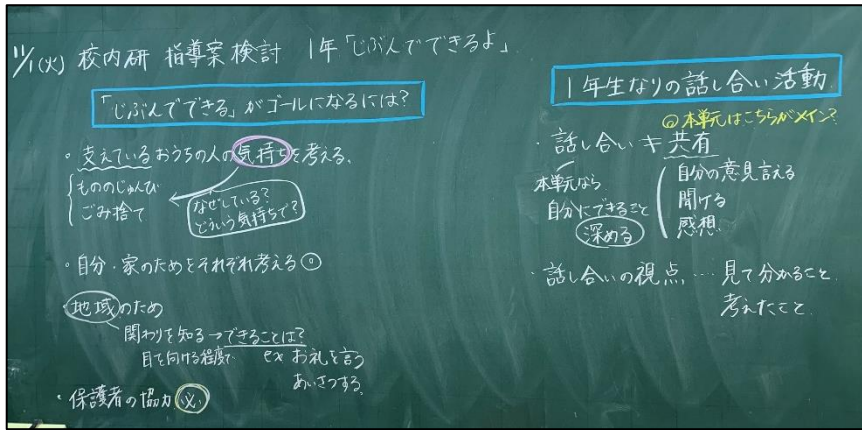 11/1(火) 校内研 指導案検討 1年「じぶんでできるよ」
「じぶんでできる」がゴールになるには?
・支えているおうちの人の気持ちを考える。
もののじゅんび
ごみ捨て
なぜしている?
どういう気持ちで?
・自分・家のためをそれぞれ考える◎
・地域のため
関わりを知る→できることは?
目を向ける程度で ex お礼を言う
あいさつする。
・保護者の協力 必
1年生なりの話し合い活動
◎本単元はこちらがメイン?
・話し合い≠共有
本単元なら
自分にできること
深める
自分の意見言える
聞ける
感想
・話し合いの視点…見て分かること
考えたこと